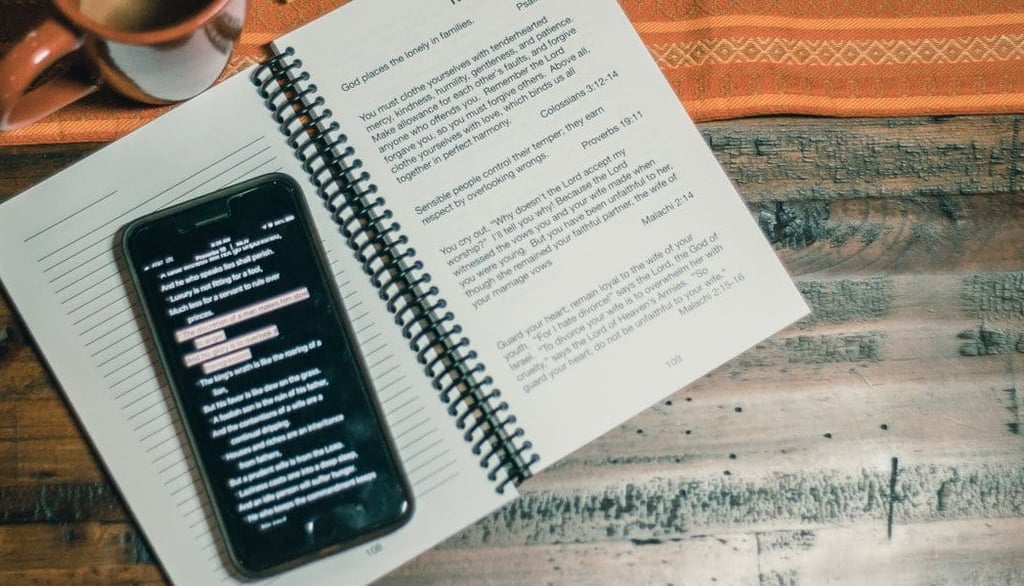 God places the lonely in families.
You must clothe yourselves with tenderhearted
mercy, kindness, humility, gentleness, and patience.
Make allowance for each other's faults, and forgive
anyone who offends you. Remember the Lord
forgave you, so you must forgive others. Above all,
clothe yourselves with love, which binds us all
together in perfect harmony.
Colossians 3:12-14
Sensible people control their temper; they earn
respect by overlooking wrongs.
Proverbs 19:11
You cry out, "Why doesn't the Lord accept my
worship?" I'll tell you why! Because the Lord
witnessed the vows you and your wife made when
you were young. But you have been unfaithful to her,
though she remained your faithful partner, the wife of
your marriage vows
Malachi 2:14
Guard your heart; remain loyal to the wife of your
youth. "For I hate divorce!" says the Lord, the God of
Israel. "To divorce your wife is to overwhelm her with
cruelty," says the Lord of Heaven's Armies. "So
guard your heart; do not be unfaithful to your wife."
Malachi 2:15-16
109
AT&T LTE
Proverbs 19 NKJV
And he who speaks lies shall perish.
Luxury is not fitting for a fool,
Much less for a servant to rule over
princes.
The discretion of a man makes him slow
to anger,
And his glory is to overlook a
transgression.
The king's wrath is like the roaring of a
lion,
But his favor is like dew on the grass.
A foolish son is the ruin of his father,
And the contentions of a wife are a
continual dripping.
Houses and riches are an inheritance
from fathers,
But a prudent wife is from the Lord.
Laziness casts one into a deep sleep,
And an idle person will suffer hunger.
He who keeps the commandment keeps
108